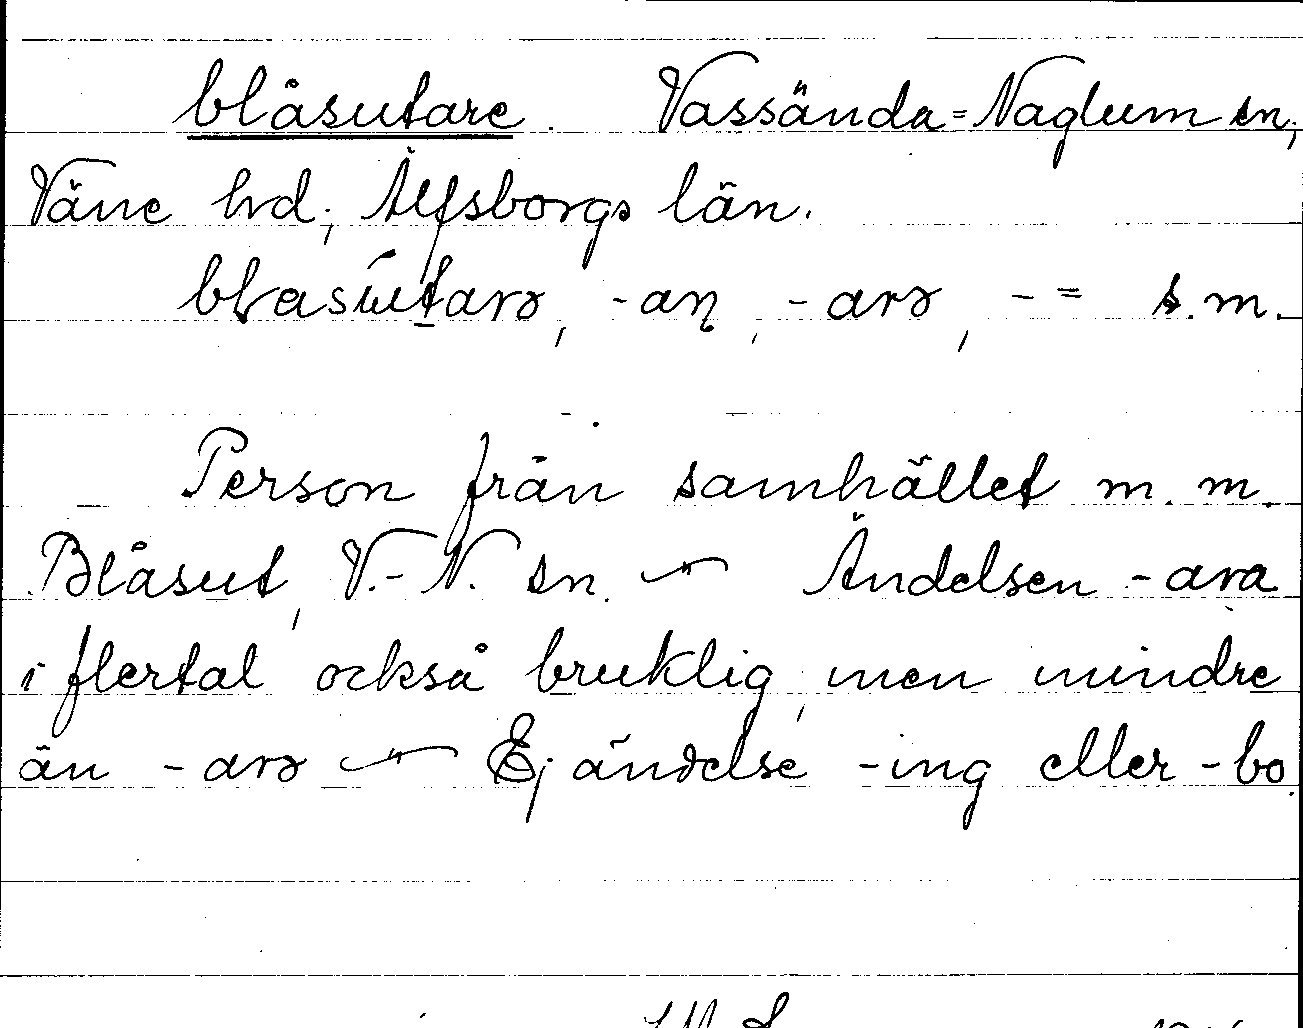 blåsutare. Vassända=Naglum sn,
Väne hd, Älfsborgs län.
blasutarə, -an, -arə, -= s.m.
Person från samhället m. m.
Blåsut, V.-N. sn. —"— Ändelsen -ara
i flertal också bruklig, men mindre
än -arə —"— Ej ändelse -ing eller -bo.